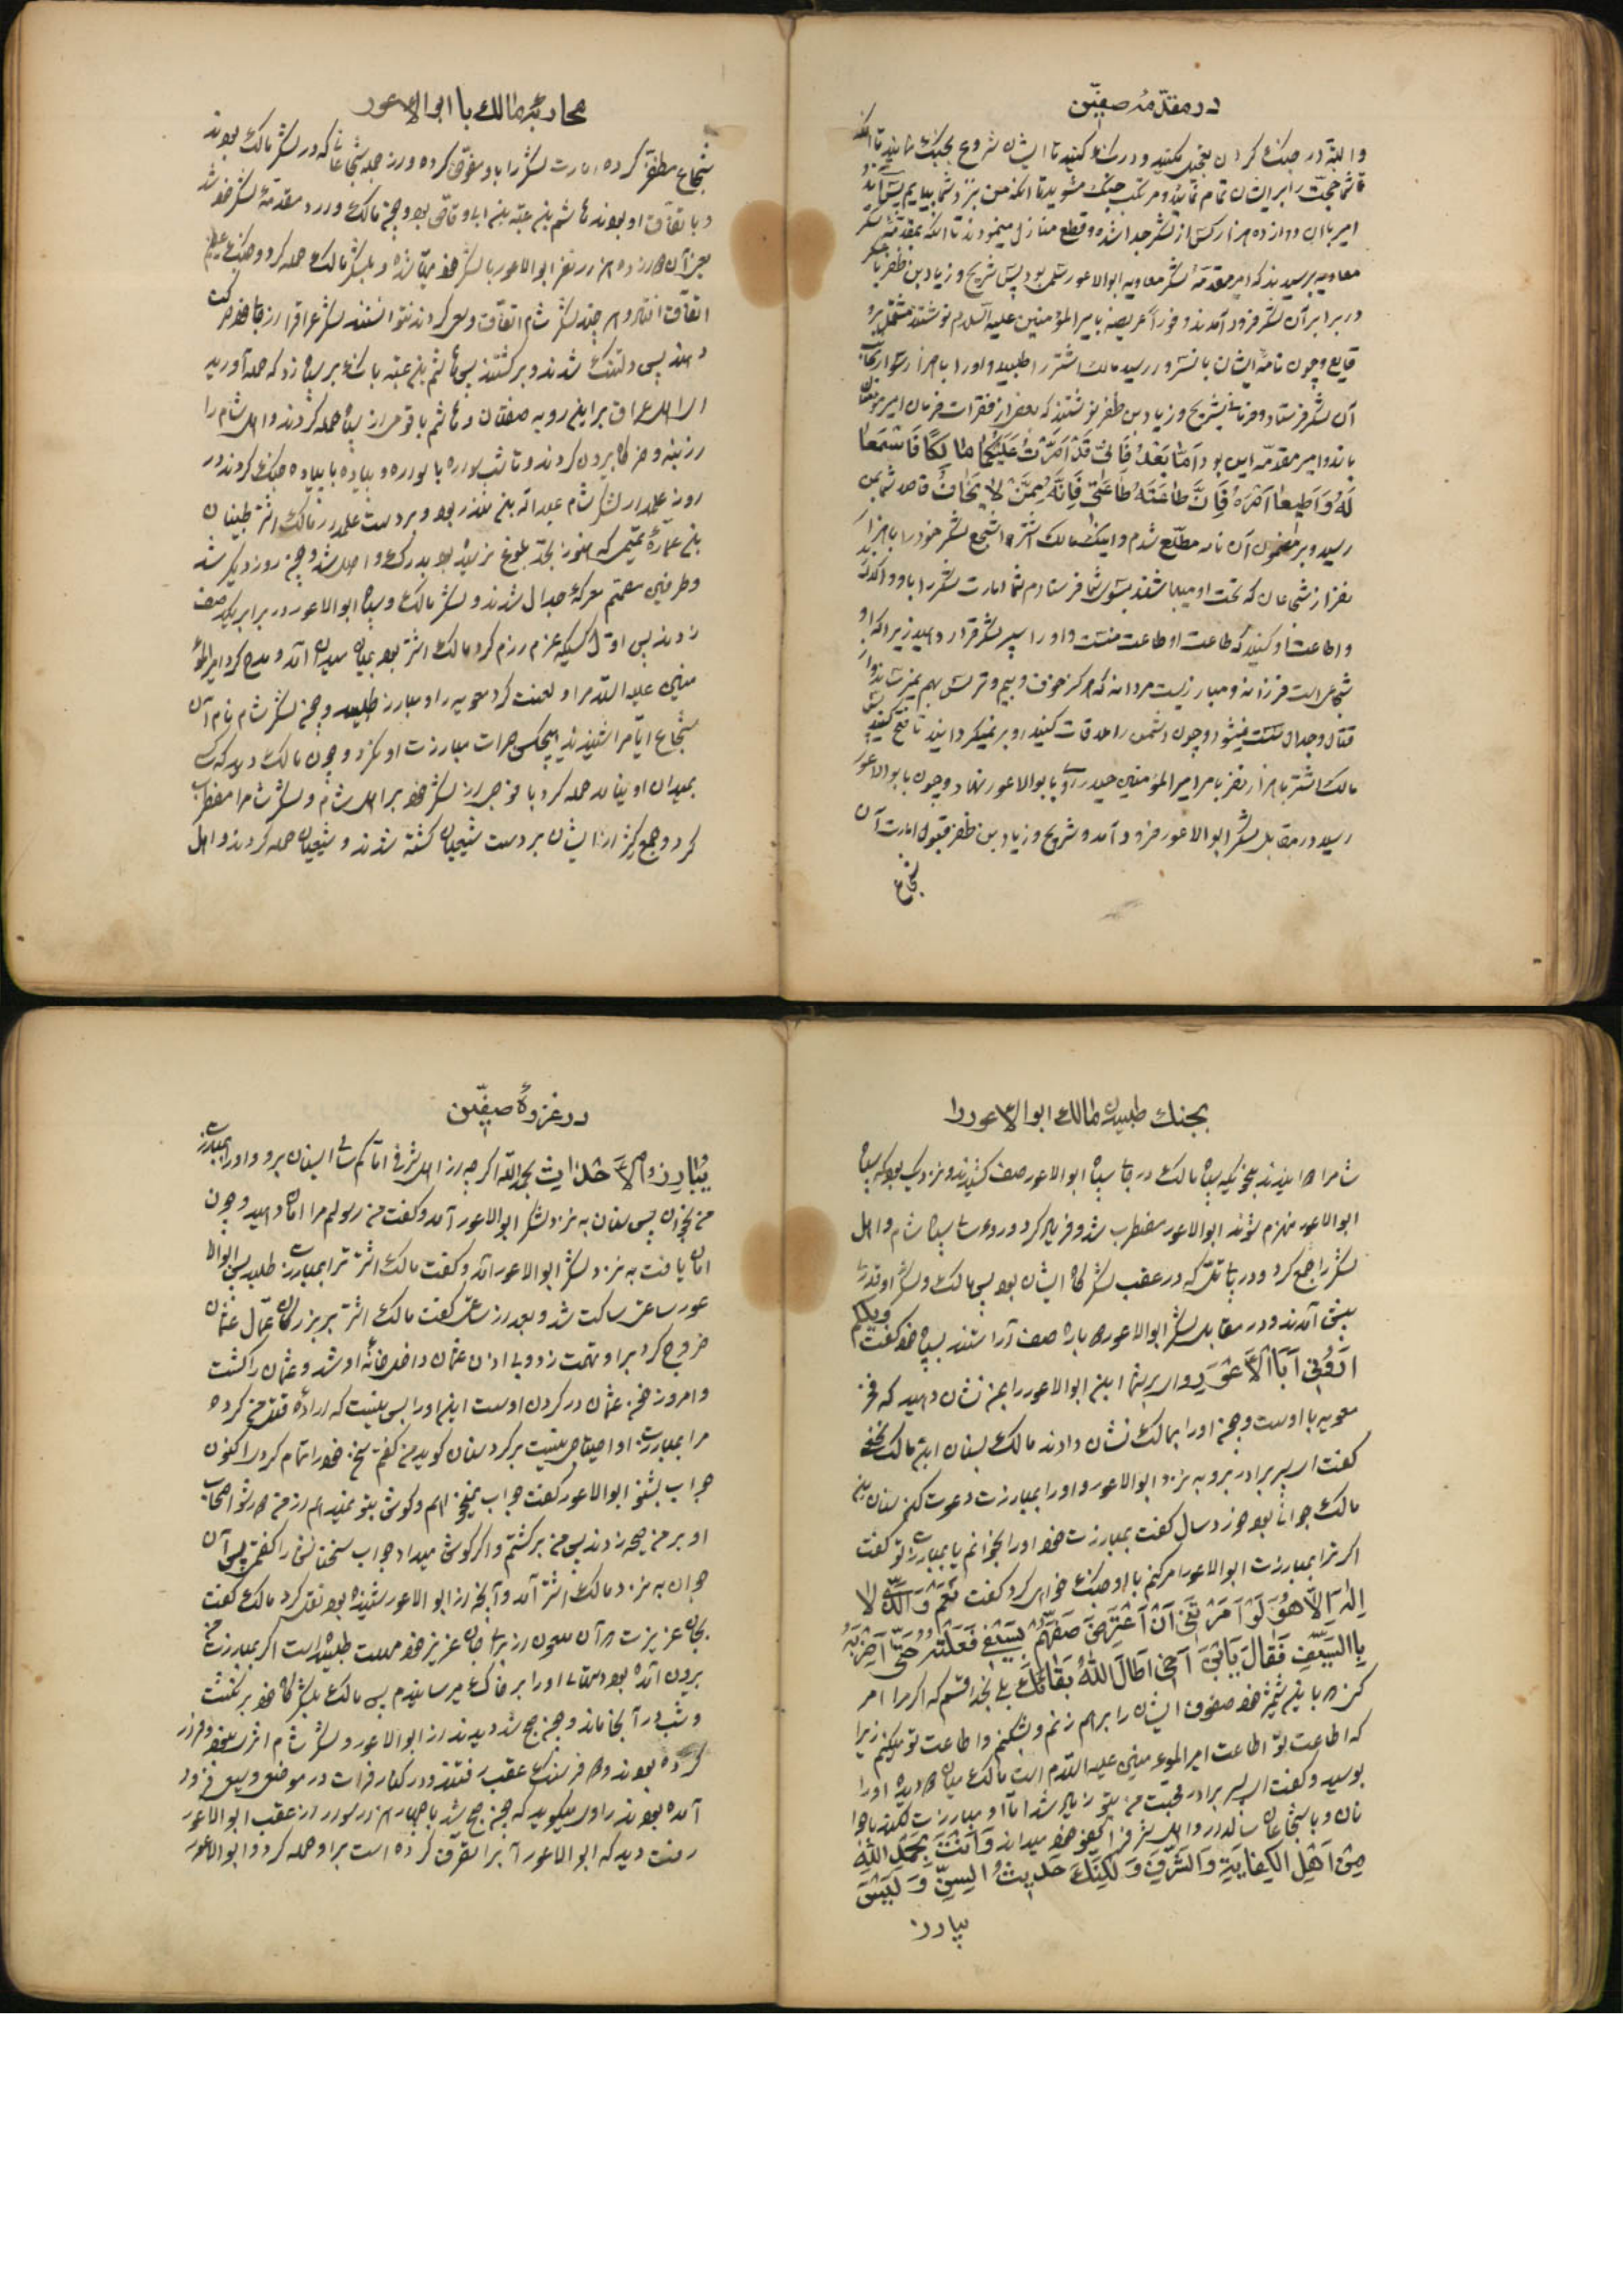 در مقدّمهٔ صفّین
والبتّه در جنک کردن تعجیل مکنید و درنک کنید تا ایشان شروع بجنک نمایند تا آنکه
قائم حجّت را بر ایشان تمام نمائید و مرتکب جنک مشوید تا آنکه من بنزد شما بیایم پس آن دو
امیر با آن دوازده هزار کس از لشکر جدا شده و قطع منازل مینمودند تا آنکه بمقدّمهٔ لشکر
معاویه برسیدند که امیر مقدّمهٔ لشکر معاویه ابوالاعور سلمی بود پس شریح و زیاد بن ظفر با عسکر
در برابر آن لشکر فرود آمدند و فوراً عریضه بامیرالمؤمنین علیه السّلام نوشتند مشتمل بر و
قایع و چون نامهٔ ایشان بآنسرور رسید مالک اشتر را طلبید و او را با هزار سوار بجانب
آن لشکر فرستاد و فرمانی بشریح و زیاد بن ظفر نوشتند که بعضی از فقرات فرمان امیرمؤمنان
باندو امیر مقدّمه این بود اَمّا بَعْدُ فَاِنّی قَدْ اَمَّرْتُ عَلَیْکُما مالِکًا فَاسْمَعا
لَهُ وَاَطیعا اَمْرَهُ فَاِنَّ طاعَتَهُ طاعَتی فَاِنَّهُ مِمَّنْ لا یَخافُ قاصد شما بمن
رسید و بر مضمون آن نامه مطّلع شدم و اینک مالک اشتر اشجع لشکر خود را با هزار
نفر از شجاعان که تحت او میباشند بسوی شما فرستادم شما امارت لشکر را باو واگذارید
و اطاعت او کنید که طاعت او طاعت منست و او را سپر لشکر قرار دهید زیرا که او
شجاعی است فرزانه و مبارزیست مردانه که هرگز خوف و بیم و ترس بهم نمیرساند و از
قتال و جدال سست نمیشود و چون دشمن را ملاقات کنید رو بر نمیکرداند تا فتح کنید پس
مالک اشتر با هزار نفر بامر امیرالمؤمنین حیدر رو بابوالاعور نهاد و چون بابوالاعور
رسید در مقابل لشکر ابوالاعور فرود آمد و شریح و زیاد بن ظفر قبول امارت آن
شجاع
محاربهٔ مالک با ابوالاعور
شجاع مظفّر کرده امارت لشکر را باو مفوّض کرده و از جمله شجاعانی که در لشکر مالک بودند
و با تفاق او بودند هاشم بن عتبه بن ابی وقّاص بود و چون مالک وارد مقدّمهٔ لشکر خود شد
بعد از آن دوازده هزار نفر ابوالاعور با لشکر خود مهیّا شده و بلشکر مالک حمله کرد و جنک عظیم
اتّفاق افتاد و هر چند لشکر شام اتّفاق و سعی کردند نتوانستند لشکر عراق را از جای خود حرکت
دهند پس دلتنک شدند و برکشتند پس هاشم بن عتبه بانک بر سپاه زد که حمله آورید
ای اهل عراق بر این روبه صفتان و هاشم با قومی از سپاه حمله کردند و اهل شام را
از بنه و خرگاه بیرون کردند و تا شب سواره با سواره و پیاده با پیاده جنک کردند در
روز علمدار لشکر شام عبداللّه بن منذر بود و بر دست علمدار مالک اشتر ظبیان
بن عمّارهٔ تمیمی که هنوز بحدّ بلوغ نرسیده بود بدرک واصل شد و چون روز دیکر شد
و طرفین مصمّم معرکهٔ جدال شدند و لشکر مالک و سپاه ابوالاعور در برابر یکدیگر صف
زدند پس اوّل کسیکه عزم رزم کرد مالک اشتر بود بمیان میدان آمد و مدح کرد امیرالمؤ
منین علیه السّلام را و لعنت کرد معویه را و مبارز طلبید و چون لشکر شام نام آن
شجاع ایّام را شنیدند هیچکس جرات مبارزت او نکرد و چون مالک دید که کسی
بمیدان او نیامد حمله کرد با فوجی از لشکر خود بر اهل شام و لشکر شام را مضطرب
کرد و جمع کثیر از ایشان بر دست شیعیان کشته شدند و شیعیان حمله کردند و اهل
بجنک طلبیدن مالک ابوالاعور را
شام را دوانیدند بنحویکه سپاه مالک در جای سپاه ابوالاعور صف کشیدند و نزدیک بود که سپاه
ابوالاعور منهزم شوند ابوالاعور مضطرب شد و فریاد کرد و رؤسای سپاه شام و اهل
لشکر را جمع کرد و در پای تلّی که در عقب لشکرگاه ایشان بود پس مالک و لشکر او قدری
پیش آمدند و در مقابل لشکر ابوالاعور دوباره صف آراستند بسپاه خود گفت ویلکم
اَرُونی اَبَا الْاَعْوَرِ وای بر شما این ابوالاعور را بمن نشان دهید که فخر
معویه باوست و چون او را بمالک نشان دادند مالک بسنان ابن مالک نخعی
کفت ای پسر برادر برو به نزد ابوالاعور و او را بمبارزت دعوت کن سنان بن
مالک جوانی بود خورد سال کفت بمبارزت خود او را بخوانم یا بمبارزت تو کفت
اکر ترا بمبارزت ابوالاعور امر کنم با او جنک خواهی کرد کفت نَعَمْ وَالَّذی لا
اِلهَ اِلاّ هُوَ لَوْ اَمَرْتَنی اَنْ اَعْتَرِضَ صَفَّهُمْ بِسَیْفی فَعَلْتُهُ حَتّی اَضْرِبَهُ
بِالسَّیْفِ فَقالَ یَابْنَ اَخی اَطالَ اللّهُ بَقائَکَ بلی بخدا قسم که اکر مرا امر
کنی با این شمشیر خود صفوف ایشان را برهم زنم و بشکنم و اطاعت تو میکنم زیرا
که اطاعت تو اطاعت امیرالمؤمنین علیه السّلام است مالک میان دو دیده او را
بوسید و کفت ای پسر برادر محبّت من بتو زیاد شد امّا او مبارزت نکند با جوا
نان و با شجاعان سالدار و اهل شرف از کفو خود میداند وَاَنْتَ بِحَمْدِ اللّهِ
مِنْ اَهْلِ الْکِفایَةِ وَالشَّرَفِ وَلکِنَّکَ حَدیثُ السِّنِّ وَلَیْسَ
یبارز
در غزوهٔ صفّین
یُبارِزُ الْاَحْداثَ بحمد اللّه اکر چه از اهل شرفی امّا کم سالی ای سنان برو و او را بمبارزت
من بخوان پس سنان به نزد لشکر ابوالاعور آمد و کفت من رسولم مرا امان دهید و چون
امان یافت به نزد لشکر ابوالاعور آمد و کفت مالک اشتر ترا بمبارزت طلبیده پس ابوالا
عور ساعتی ساکت شد و بعد از ساعتی کفت مالک اشتر بر بزرگان عمّال عثمان
خروج کرد بر او تهمت زد و بی اذن عثمان داخل خانهٔ او شد و عثمان را کشت
و امروز خون عثمان در کردن اوست این او را بس نیست که ارادهٔ قتل من کرده
مرا بمبارزت او احتیاجی نیست برکرد سنان کوید من کفتم سخن خود را تمام کردی اکنون
جواب بشنو ابوالاعور کفت جواب نمیخواهم و کوش بتو نمیدهم از من دور شو اصحاب
او بر من صیحه زدند پس من برکشتم و اکر کوش میداد جواب سخنانش را کفتمی پس آن
جوان به نزد مالک اشتر آمد و آنچه از ابوالاعور شنیده بود نقل کرد مالک کفت
بجان عزیزت که آن ملعون از برای جان عزیز خود مهلت طلبیده است اکر بمبارزت من
بیرون آمده بود دماغ او را بر خاک میرسانیدم پس مالک بلشکرگاه خود برکشت
و شب در آنجا ماند و چون صبح شد دیدند از ابوالاعور و لشکر شام اثری نبود فرار
کرده بودند و دو فرسنک عقب رفتند و در کنار فرات در موضعی وسیع فرود
آمده بودند راوی میکوید که چون صبح شد با چهار هزار سوار از عقب ابوالاعور
رفت دید که ابوالاعور آب را تصرّف کرده است بر او حمله کرد و ابوالاعور